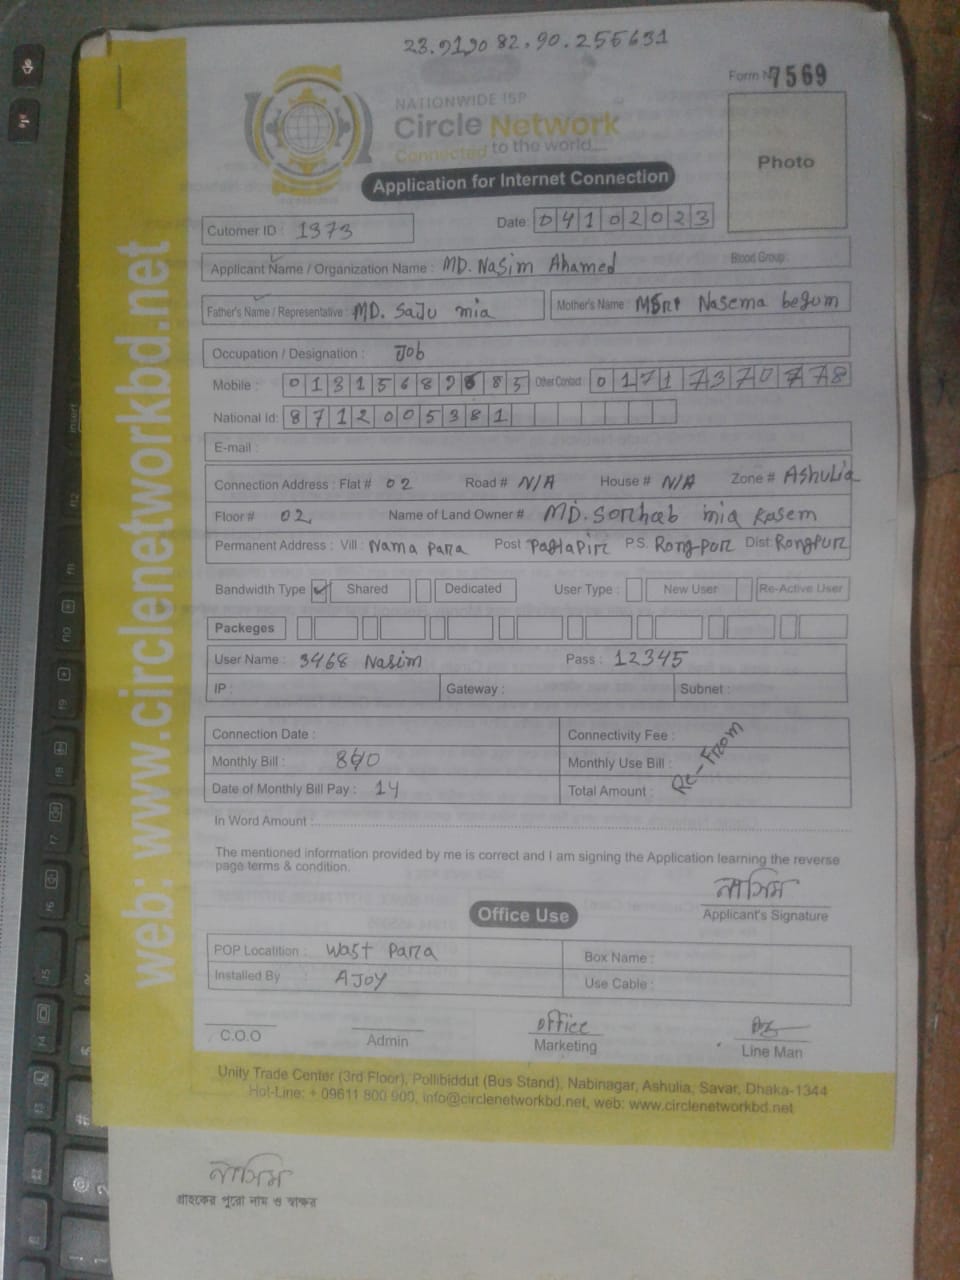 23.9190 82.90.255631
Form N 7569
NATIONWIDE ISP
Circle Network
Connected to the world....
Photo
Application for Internet Connection
Cutomer ID : 1373
Date: 04102023
Applicant Name / Organization Name : MD. Nasim Ahamed Blood Group:
Father's Name / Representative : MD. Saju mia Mother's Name : Nasema begum
Occupation / Designation : Job
Mobile : Other Contact
National Id: 8712005381
E-mail :
Connection Address : Flat # 02 Road # N/A House # N/A Zone # Ashulia
Floor # 02 Name of Land Owner # MD. Sorhab mia Kasem
Permanent Address : Vill : Nama para Post Paglapir P.S. Rongpur Dist: Rongpur
Bandwidth Type ✓ Shared Dedicated User Type : New User Re-Active User
Packeges
User Name : 3468 Nasim Pass : 12345
IP : Gateway : Subnet :
Connection Date : Connectivity Fee :
Monthly Bill : Monthly Use Bill :
Date of Monthly Bill Pay : 14 Total Amount :
Re-From
In Word Amount :
The mentioned information provided by me is correct and I am signing the Application learning the reverse
page terms & condition.
নাসিম
Applicant's Signature
Office Use
POP Locatition : Wast Para Box Name :
Installed By : AJOY Use Cable :
office
C.O.O Admin Marketing Line Man
Unity Trade Center (3rd Floor), Pollibiddut (Bus Stand), Nabinagar, Ashulia, Savar, Dhaka-1344
Hot-Line: + 09611 800 900, info@circlenetworkbd.net, web: www.circlenetworkbd.net
web: www.circlenetworkbd.net
নাসিম
গ্রাহকের পুরো নাম ও স্বাক্ষর